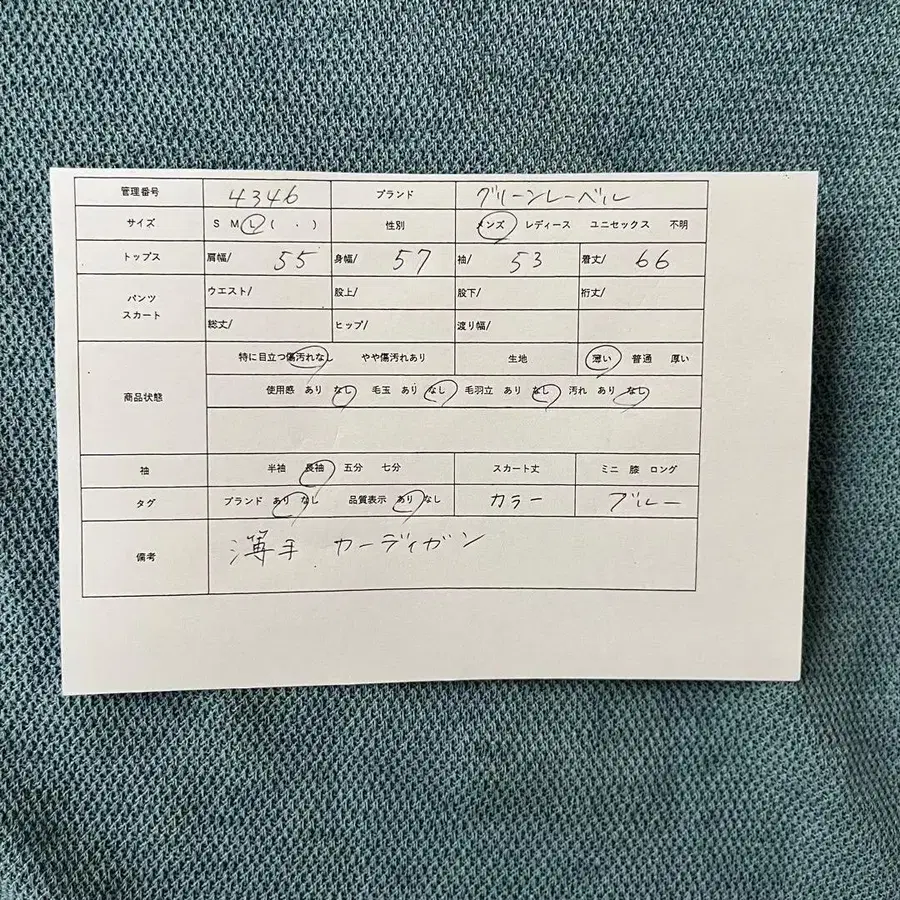 管理番号 4346 ブランド グリーンレーベル
サイズ S M L ( ・ ) 性別 メンズ レディース ユニセックス 不明
トップス 肩幅/ 55 身幅/ 57 袖/ 53 着丈/ 66
パンツ スカート ウエスト/ 股上/ 股下/ 裄丈/
総丈/ ヒップ/ 渡り幅/
商品状態 特に目立つ傷汚れなし やや傷汚れあり 生地 薄い 普通 厚い
使用感 あり なし 毛玉 あり なし 毛羽立 あり なし 汚れ あり なし
袖 半袖 長袖 五分 七分 スカート丈 ミニ 膝 ロング
タグ ブランド あり なし 品質表示 あり なし カラー ブルー
備考 薄手 カーディガン